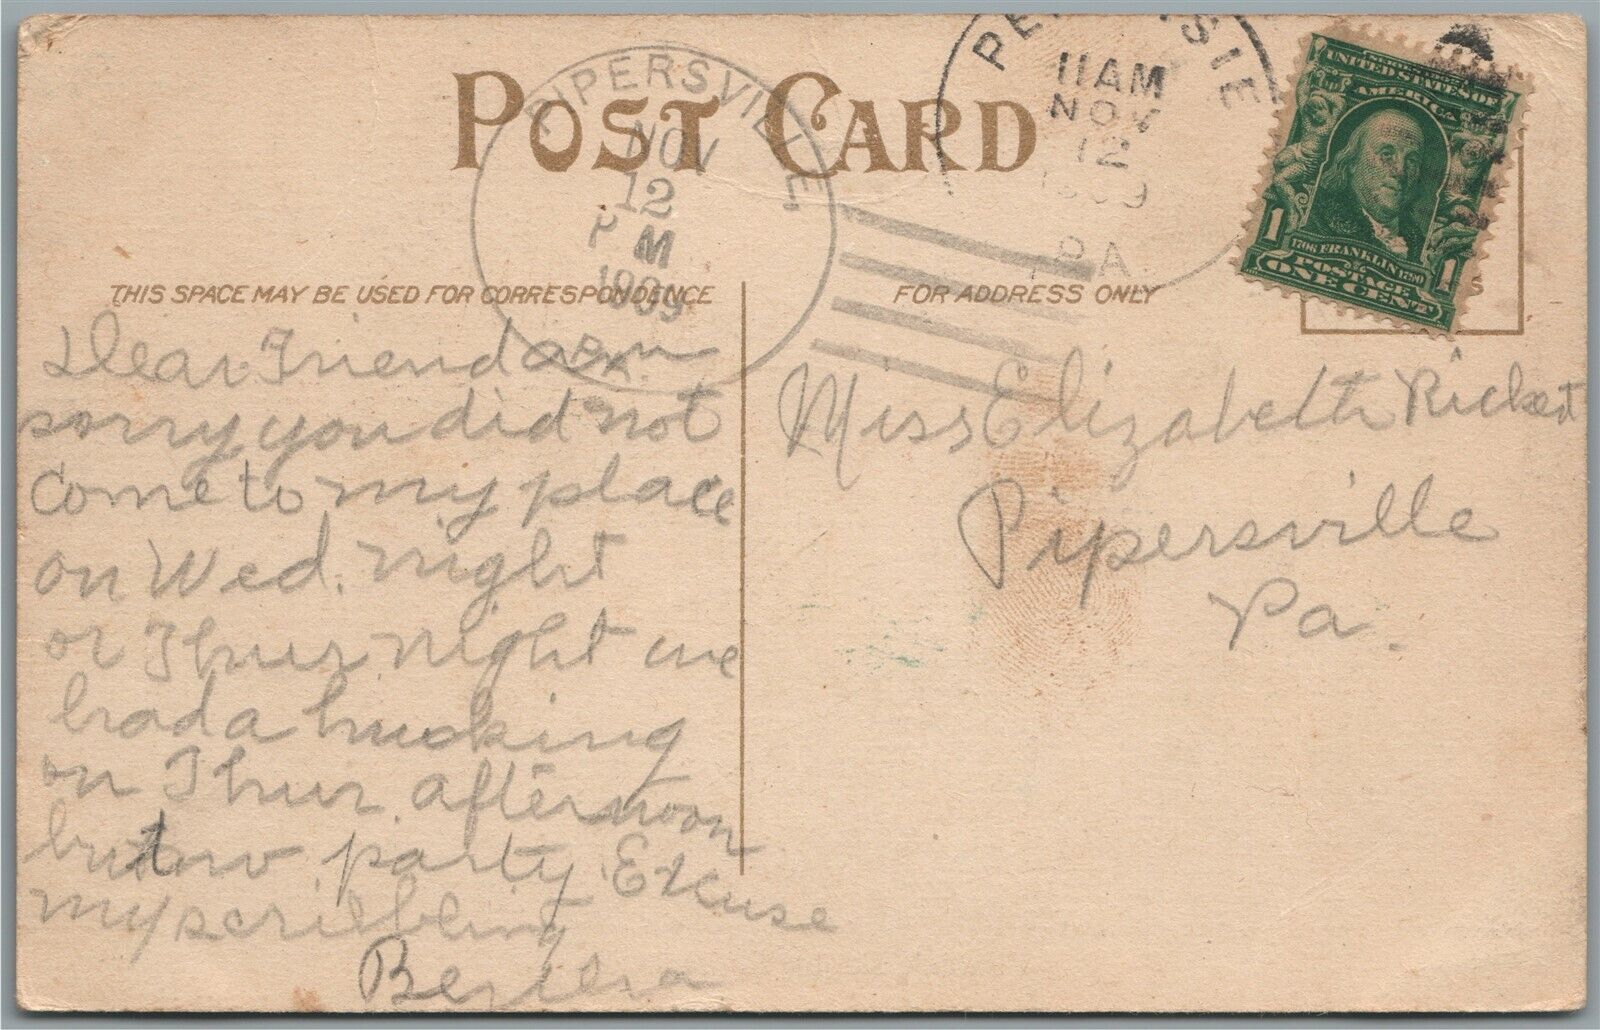 POST CARD
PIPERSVILLE
NOV
12
P M
1909
PA.
11 AM
NOV
12
1909
PA
UNITED STATES OF
AMERICA
1706 FRANKLIN 1790
POSTAGE
1 ONE CENT 1
THIS SPACE MAY BE USED FOR CORRESPONDENCE
FOR ADDRESS ONLY
Dear Friend am
sorry you did not
come to my place
on Wed. night
or Thur night we
had a husking
on Thur. afternoon
but no party. Excuse
my scribbling
Miss Elizabeth Rickert
Pipersville
Pa.